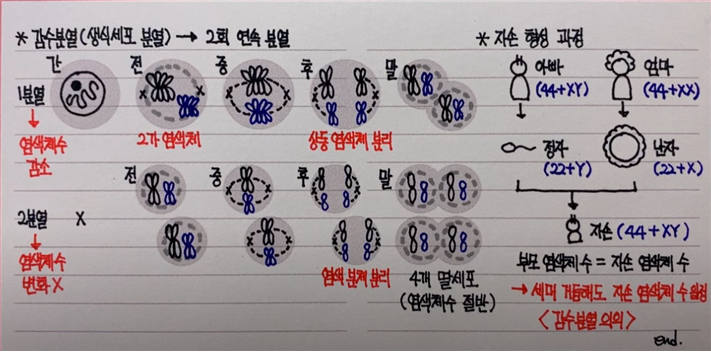 * 감수분열(생식세포 분열) → 2회 연속 분열
간 전 중 후 말
1분열
↓
염색체수
감소
2가 염색체
상동 염색체 분리
전 중 후 말
2분열 X
↓
염색체수
변화 X
염색 분체 분리
4개 딸세포
(염색체수 절반)
* 자손 형성 과정
아빠 엄마
(44+XY) (44+XX)
정자 난자
(22+Y) (22+X)
자손 (44+XY)
부모 염색체 수 = 자손 염색체 수
→ 세대 거듭해도 자손 염색체 수 일정
<감수분열 의의>
end.